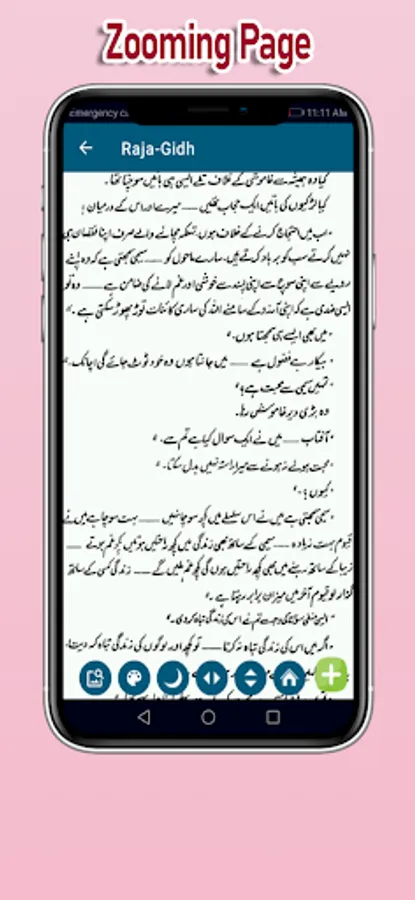 Zooming Page
Emergency ca
11:11 AM
Raja-Gidh
کیا وہ ہمیشہ سے خاموشی کے غلاف تلے ایسی ہی باتیں سوچتا تھا۔
کیا لڑکیوں کی باتیں ایک حجاب تھیں ـــــ میرے اور اس کے درمیان !
"سب میں احتجاج کرنے کے خلاف ہوں، تہلکہ مچانے والے صرف اپنا نقصان ہی
نہیں کرتے سب کو برباد کرتے ہیں، سارے ماحول کو ـــــ سیمی سمجھتی ہے کہ وہ اپنے
رویے سے اپنی سوچ سے اپنی پسند سے خوشی اور غم لانے کی ضامن ہے ـــــ وہ تو
ایسی ضدی ہے کہ اپنی آرزو کے سامنے اللہ کی ساری کائنات توڑ پھوڑ سکتی ہے ۔"
"میں بھی ایسے ہی سمجھتا ہوں۔"
"بیکار ہے فضول ہے ـــــ میں جانتا ہوں وہ خود ٹوٹ جائے گی اچانک۔"
"تمہیں سیمی سے محبت ہے؟"
وہ بڑی دیر خاموش رہا۔
"آفتاب ـــــ میں نے ایک سوال کیا ہے تم سے۔"
"محبت ہونے نہ ہونے سے میرا راستہ نہیں بدل سکتا۔"
"کیوں؟"
"سیمی سمجھتی ہے میں نے اس سلسلے میں کچھ سوچا نہیں ـــــ بہت سوچا ہے میں نے
قیوم بہت زیادہ ـــــ سیمی کے ساتھ بھی زندگی میں کچھ راحتیں ہوتیں کچھ غم ہوتے ـــــ
زیبا کے ساتھ رہنے میں بھی کچھ راحتیں ہوں گی کچھ غم ملیں گے ـــــ زندگی کسی کے ساتھ
گذار لو قیوم آخر میں میزان برابر رہتا ہے ۔"
تم نے اس کی زندگی تباہ کر دی۔"
"اگر میں اس کی زندگی تباہ نہ کرتا ـــــ تو کچھ اور لوگوں کی زندگی تباہ کر دیتا۔